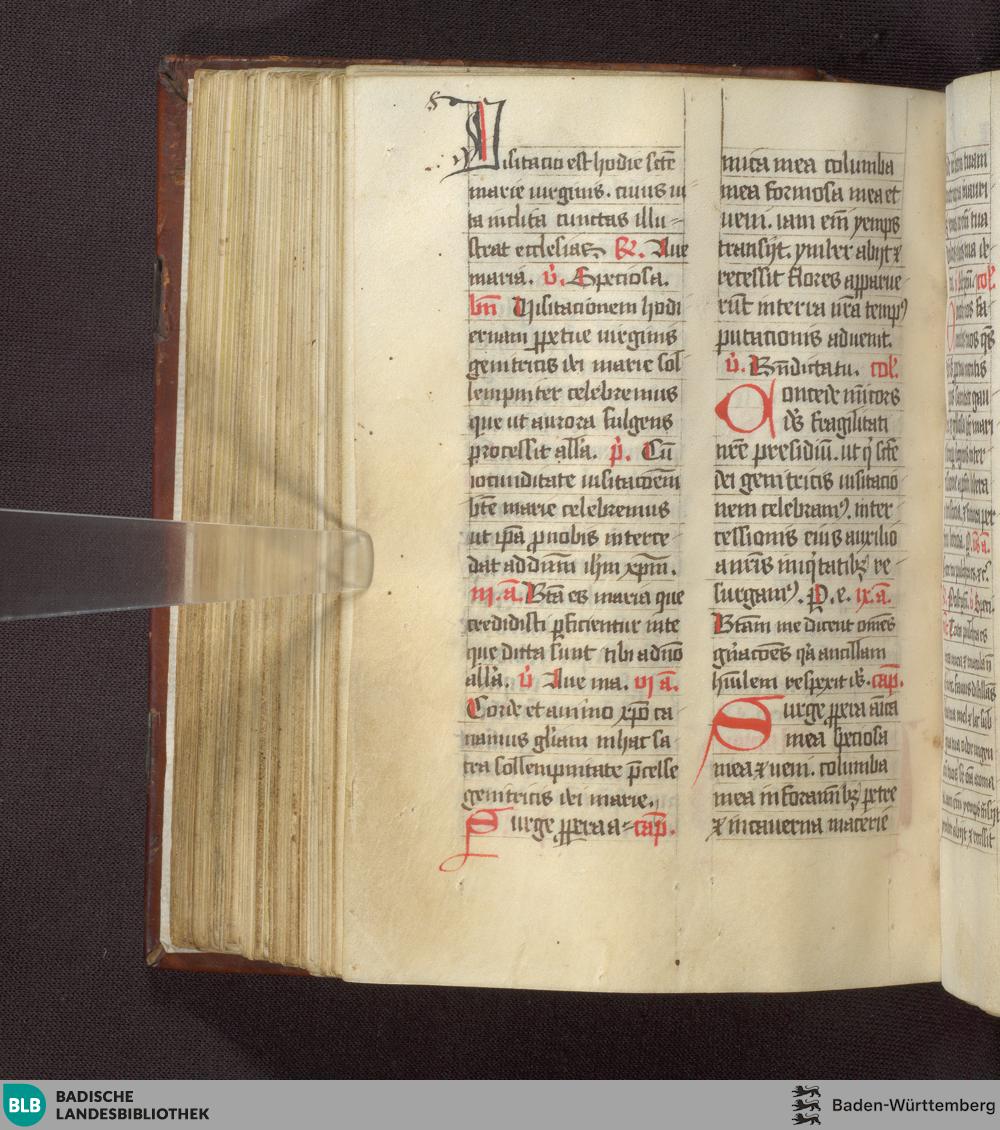 Visitacio est hodie scte
marie virginis. cuius vi
ta inclita cunctas illu-
strat ecclesias. R. Aue
maria. v. Speciosa.
bn Visitacionem hodi
ernam ppetue virginis
genitricis dei marie sol
lempniter celebremus
que ut aurora fulgens
processit alla. p. Cu
iocunditate visitacoem
bte marie celebremus
ut ipa p nobis interce
dat ad dnm ihm xpm.
iii. a. Bta es maria que
credidisti pficientur in te
que dicta sunt tibi a dno
alla. v Aue ma. vi a.
Corde et animo xpo ca
namus gliam in hac sa
cra sollempnitate pcelse
genitricis dei marie.
Surge ppera a- cap.
mica mea columba
mea formosa mea et
veni. iam em yemps
transijt. ymber abijt et
recessit flores apparue
rut in terra nra temp9
putacionis aduenit.
v. Bndicta tu. col.
Concede miicors
ds fragilitati
nre presidiu. ut q scte
dei genitricis visitacio
nem celebram9. inter
cessionis eius auxilio
a nris iniqtatibz re
surgam9. P. e. ix. a.
Btam me dicent omes
gnacoes qa ancillam
humilem respexit ds. cap.
Surge ppera aica
mea speciosa
mea et veni. columba
mea in foraminibz petre
et in cauerna macerie
BLB BADISCHE
LANDESBIBLIOTHEK
Baden-Württemberg